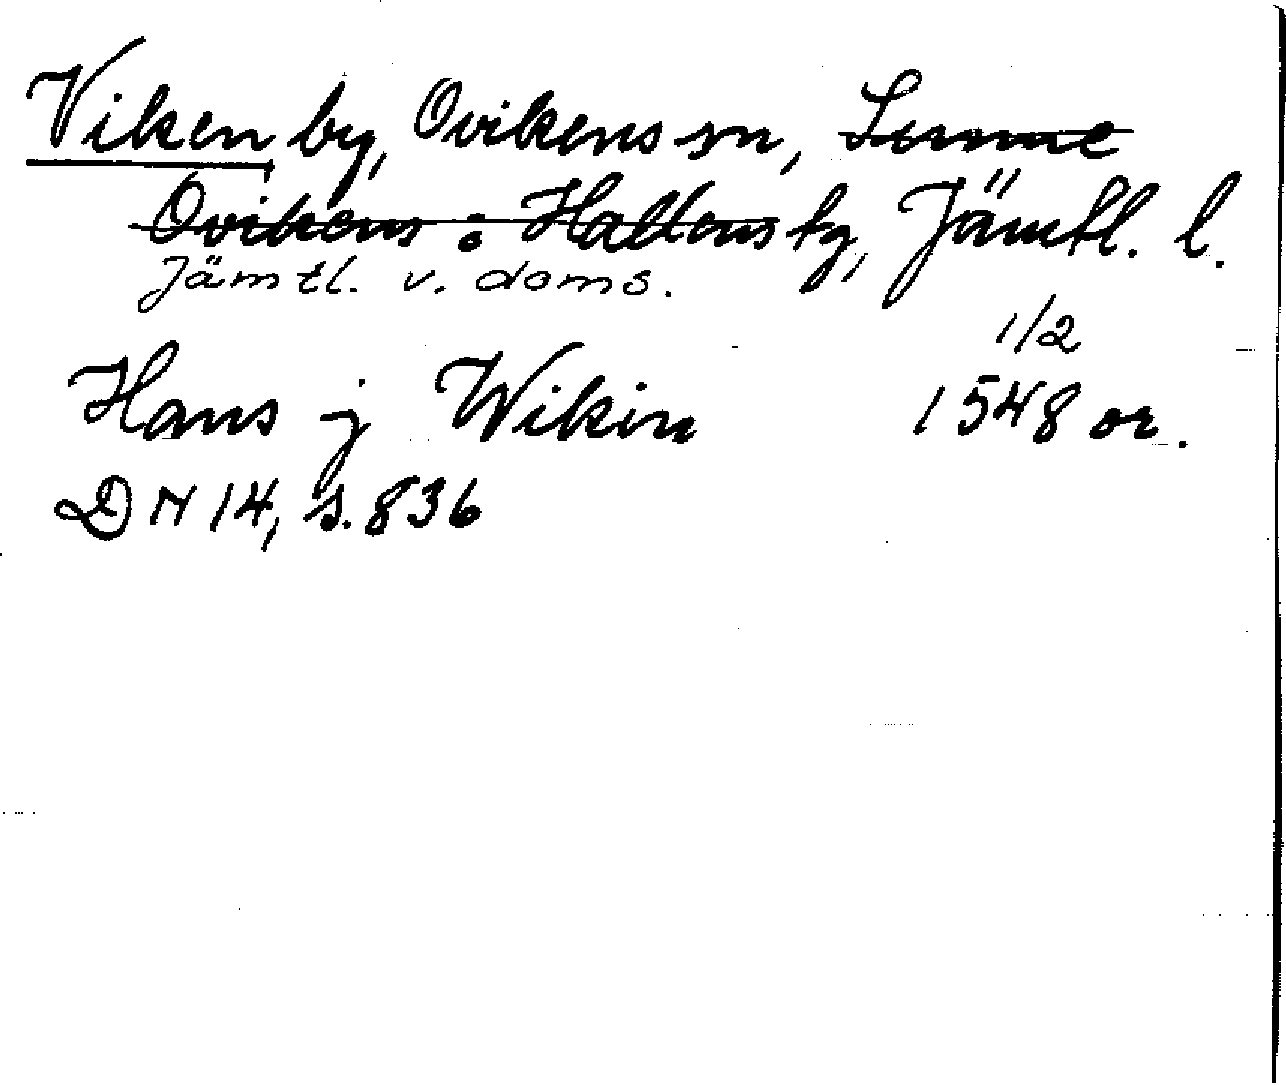 Viken by, Ovikens sn, Sunne
Ovikens o Hallens tg, Jämtl. l.
Jämtl. v. doms.
1/2
Hans j Wikin 1548 or.
DN 14, s. 836